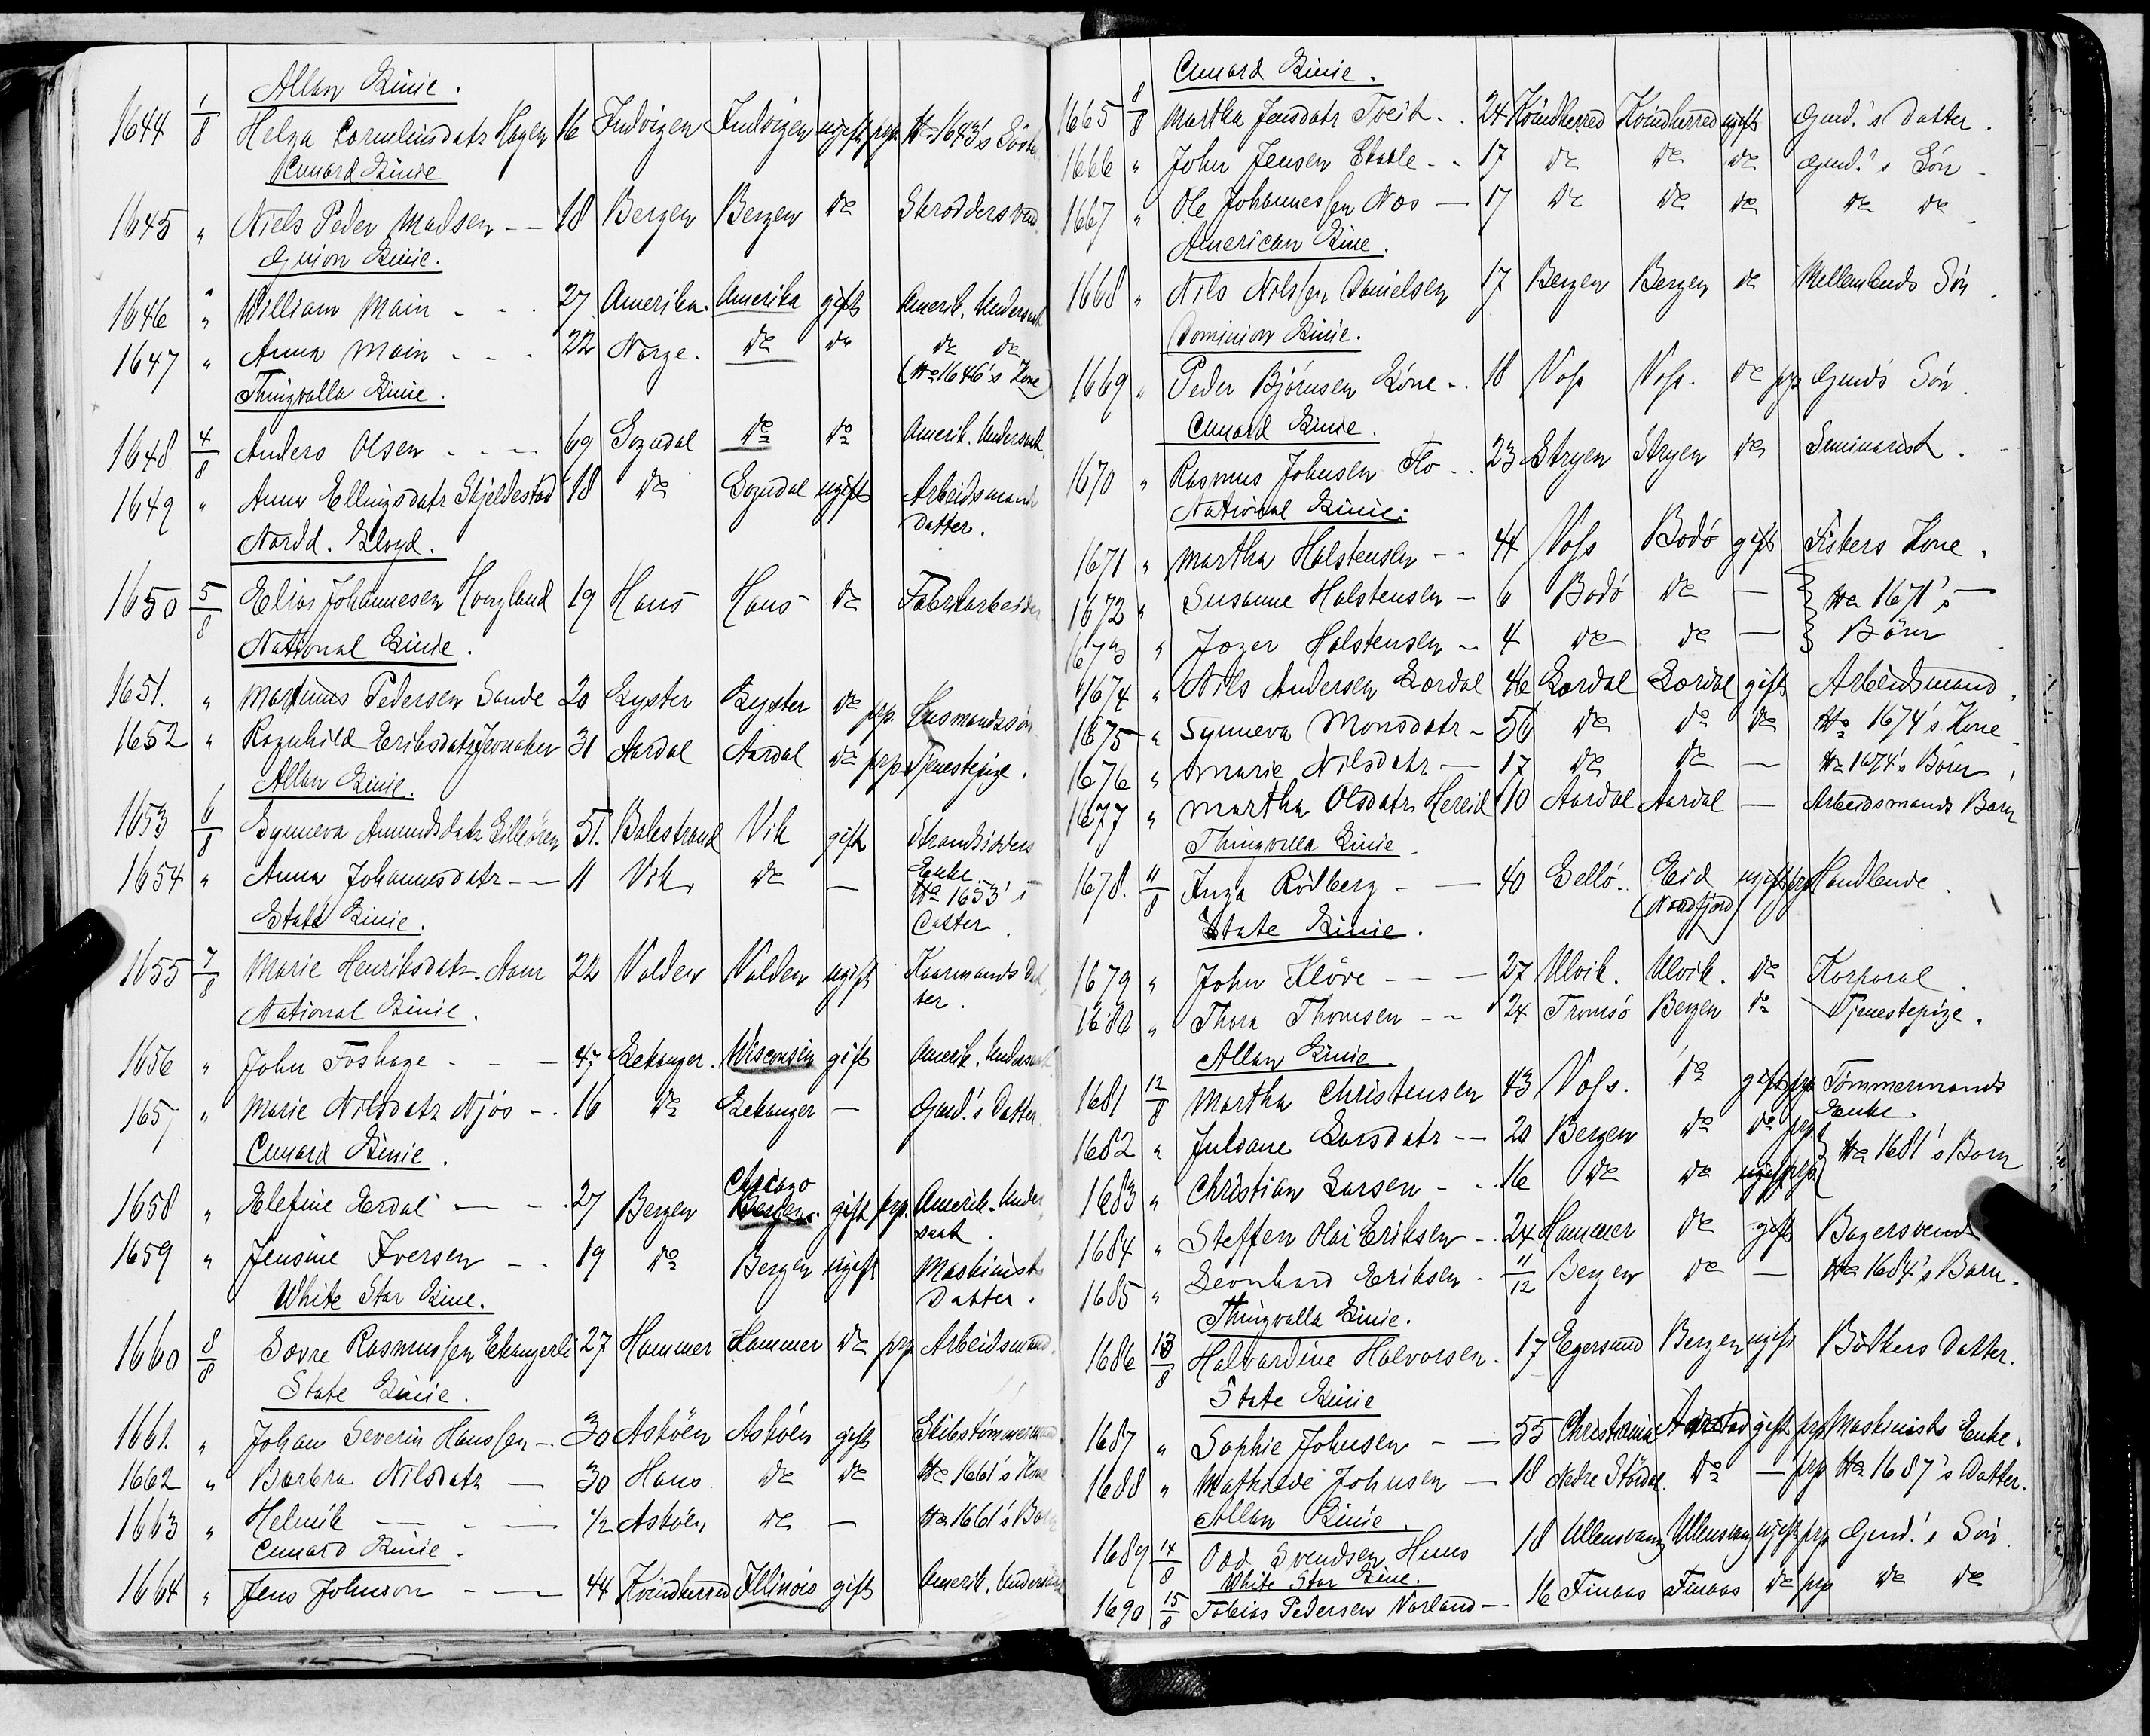 Allan Linie.
1644 1/8 Helga Corneliusdatr Hagen 16 Indvigen Indvigen ugift prp. No 1643's Söster
Cunard Linie
1645 " Niels Peder Madsen -- 18 Bergen Bergen do Skræddersvend
Guion Linie.
1646 " William Main - - . 27 Amerika. Amerika gift Amerik. Undersaat
1647 " Anna Main - - - 22 Norge. do do do do
(No 1646's Kone)
Thingvalla Linie.
1648 4/8 Anders Olsen - - - 69 Sogndal do do Amerik. Undersaat.
1649 " Anna Ellingsdatr Skjeldestad 18 do Sogndal ugift Arbeidsmands
Datter.
Nordd. Lloyd.
1650 5/8 Elias Johannesen Hougland 19 Haus Haus do Fabrikarbeider
National Linie.
1651. " Martinus Pedersen Sande 20 Lyster Lyster do prp. Husmandssön
1652 " Ragnhild Eriksdatr 31 Aardal Aardal do prp Tjenestepige.
Allan Linie.
1653 6/8 Synneva Amundsdatr 51. Balestrand Vik gift Strandsidders
Enke
1654 " Anna Johannesdatr -- 11 Vik do — No 1653's
Datter.
State Linie.
1655 7/8 Marie Henriksdatr Aam 22 Volden Volden ugift Kaarmands Dat-
ter.
National Linie.
1656 " John Foshage - - - 47 Lekanger. Wisconsin gift Amerik. Undersaat.
1657 " Marie Nilsdatr Njös -. 16 do Lekanger — Gmd.'s Datter.
Cunard Linie.
Chicago
1658 " Elefine Erdal — - . 27 Bergen Bergen. gift prp. Amerik. Under-
saat.
1659 " Jensine Iversen - . 19 do Bergen ugift Maskinists
Datter.
White Star Line.
1660 8/8 Sovre Rasmussen 27 Hammer Hammer do prp Arbeidsmand.
State Linie.
1661. " Johan Severin Hanssen -. 30 Asköen Asköen gift Skibstömmermand
1662 " Barbra Nilsdatr — 30 Haus do do No 1661's Kone
1663 " Helmik — - — 1/2 Asköen do — No 1661's Barn
Cunard Linie.
1664 " Jens Johnson - — 44 Kvindherred Illinois gift Amerik. Undersaat
Cunard Linie.
1665 8/8 Martha Jensdatr Tveit -. 24 Kvindherred Kvindherred ugift Gmd.'s Datter.
1666 " John Jensen - . 17 do do do Gmd.'s Sön -
1667 " Ole Johannessen Næs — 17 do do do do do -
American Line.
1668 " Nils Nilssen Danielsen 17 Bergen Bergen do Mellemlands Sön.
Dominion Linie.
1669 " Peder Björnsen Löne -. 18 Voss Voss. do prp Gmd's Sön.
Cunard Linie.
1670 " Rasmus Johnsen Flo -. 23 Stryen Stryen do Seminarist.
National Linie.
1671 " Martha Halstensen - . 44 Voss Bodö gift Fiskers Kone.
1672 " Susanne Halstensen — 6 Bodö do — } No 1671's
1673 " Joger Halstensen — 4 do do — } Börn
1674 " Nils Andersen Lærdal 46 Lærdal Lærdal gift Arbeidsmand.
1675 " Synneva Monsdatr — 50 do do do No 1674's Kone.
1676 " Marie Nilsdatr — 17 do do — No 1674's Börn.
1677 " Martha Olsdatr Hereid 10 Aardal Aardal — Arbeidsmands Barn
Thingvalla Linie.
1678. 11/8 Inga Rödberg - — 40 Selló. Eid ugift prp Handlende.
(Nordfjord)
State Linie.
1679 " John Klöve - - — 27 Ulvik. Ulvik. do Korporal.
1680 " Thora Thomsen - - 24 Tromsö Bergen do Tjenestepige.
Allan Linie.
1681 12/8 Martha Christensen 43 Voss. do gift prp Tömmermands
Enke.
1682 " Juliane Larsdatr -- 20 Bergen do do prp } No 1681's Børn
1683 " Christian Larsen - . 16 do do ugift prp }
1684 " Steffen Olai Eriksen -. 24 Hammer do gift Bagersvend
1685 " Leonhard Eriksen - 11/12 Bergen do — No 1684's Barn.
Thingvalla Linie.
1686 13/8 Halvardine Halvorsen. 17 Egersund Bergen ugift Bödkers Datter.
State Linie
1687 " Sophie Johnsen - — 55 Christiania Aarstad gift prp Maskinists Enke.
1688 " Mathilde Johnsen — 18 Nedre Stördal. do — prp No 1687's Datter.
Allan Linie.
1689 14/8 Odd Svendsen Huus 18 Ullensvang Ullensvang ugift prp Gmd.'s Sön.
White Star Line.
1690 15/8 Tobias Pedersen Vorland — 16 Finaas Finaas do prp do do